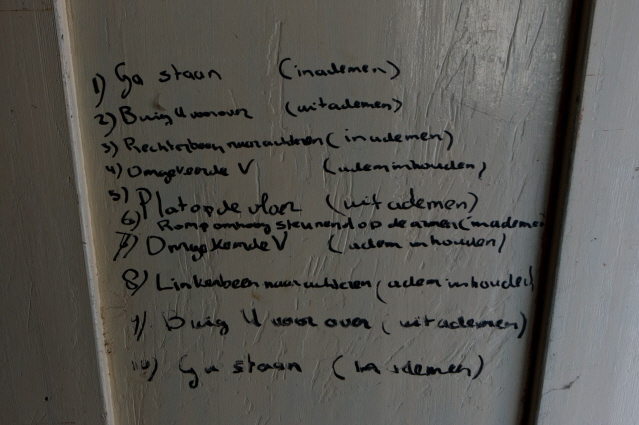 1) Ga staan (inademen)
2) Buig U voorover (uitademen)
3) Rechterbeen naar achteren (inademen)
4) Omgekeerde V (adem inhouden)
5) Plat op de vloer (uitademen)
6) Romp omhoog steunend op de armen (inademen
7) Omgekeerde V (adem inhouden)
8) Linkerbeen naar achteren (adem inhouden)
9) Buig U voorover (uitademen)
10) Ga staan (inademen)